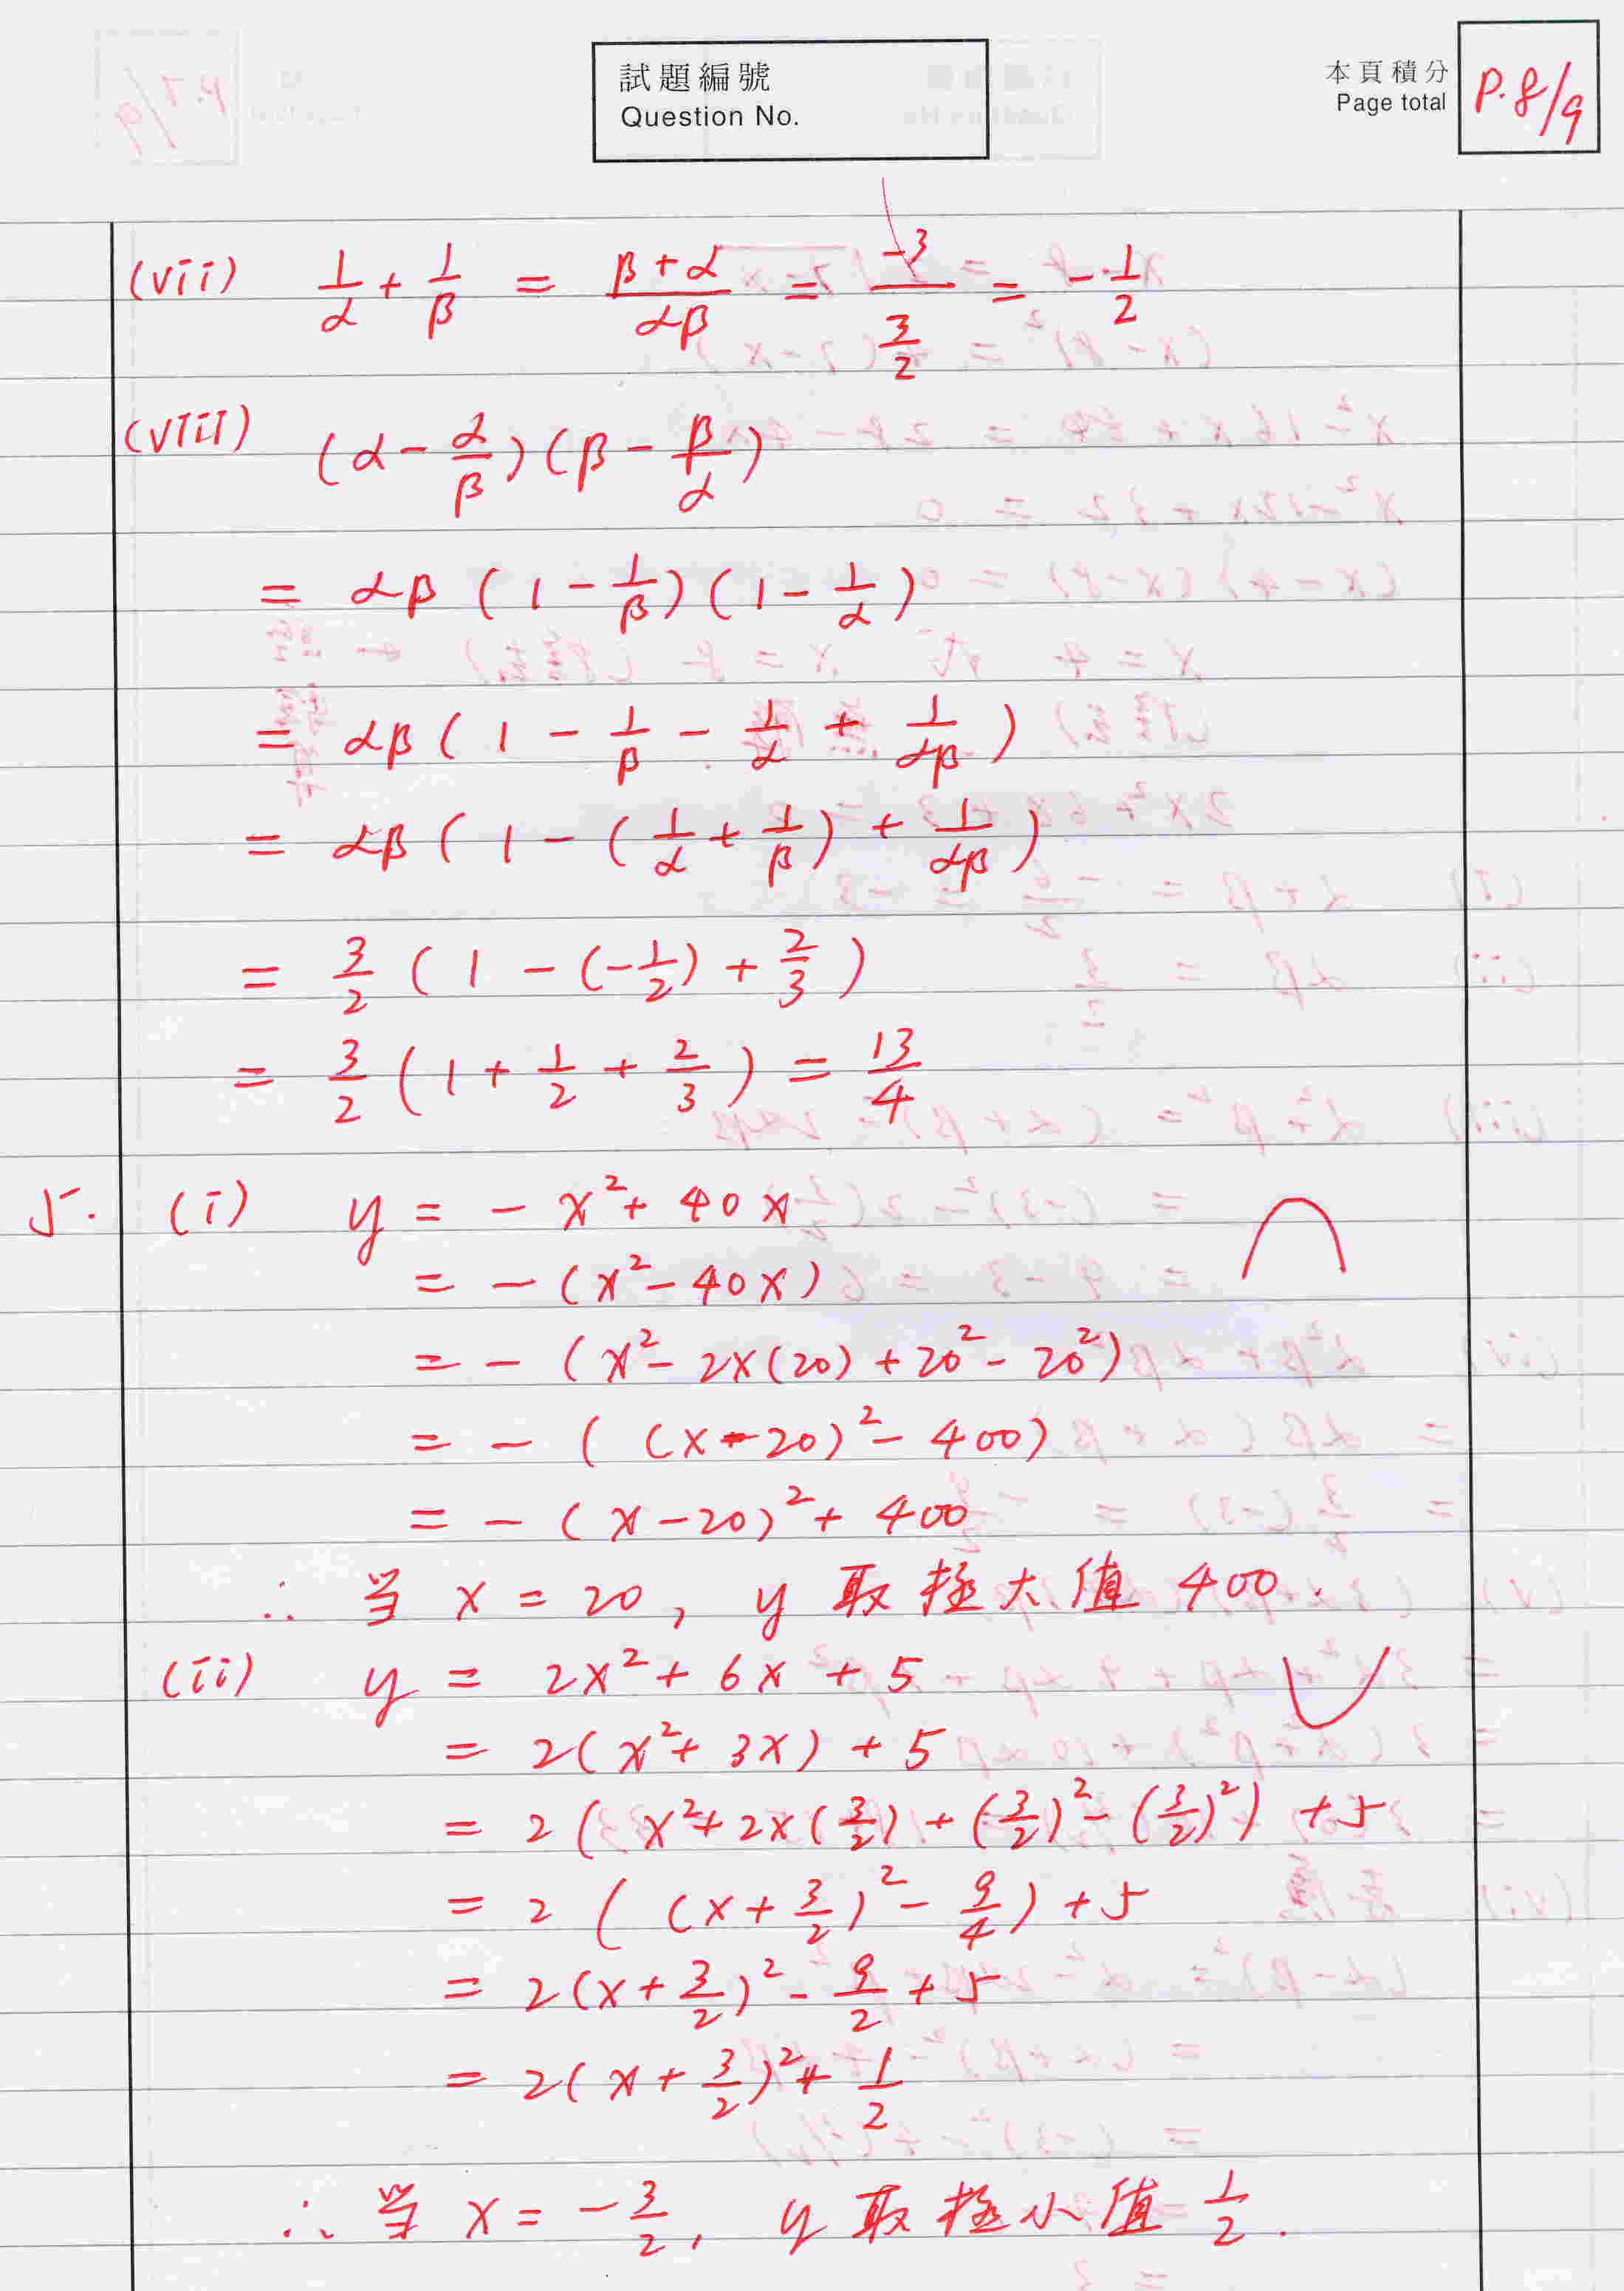 試題編號
Question No.
本頁積分
Page total
P.8/9
(vii) 1/α + 1/β = (β+α)/(αβ) = -3/(3/2) = -1/2
(viii) (α - α/β)(β - β/α)
= αβ(1 - 1/β)(1 - 1/α)
= αβ(1 - 1/β - 1/α + 1/(αβ))
= αβ(1 - (1/α + 1/β) + 1/(αβ))
= 3/2 (1 - (-1/2) + 2/3)
= 3/2 (1 + 1/2 + 2/3) = 13/4
5. (i) y = -x² + 40x
= -(x² - 40x)
= -(x² - 2x(20) + 20² - 20²)
= -((x-20)² - 400)
= -(x-20)² + 400
∴ 当 x = 20, y 取極大值 400.
(ii) y = 2x² + 6x + 5
= 2(x² + 3x) + 5
= 2(x² + 2x(3/2) + (3/2)² - (3/2)²) + 5
= 2((x + 3/2)² - 9/4) + 5
= 2(x + 3/2)² - 9/2 + 5
= 2(x + 3/2)² + 1/2
∴ 当 x = -3/2, y 取極小值 1/2.